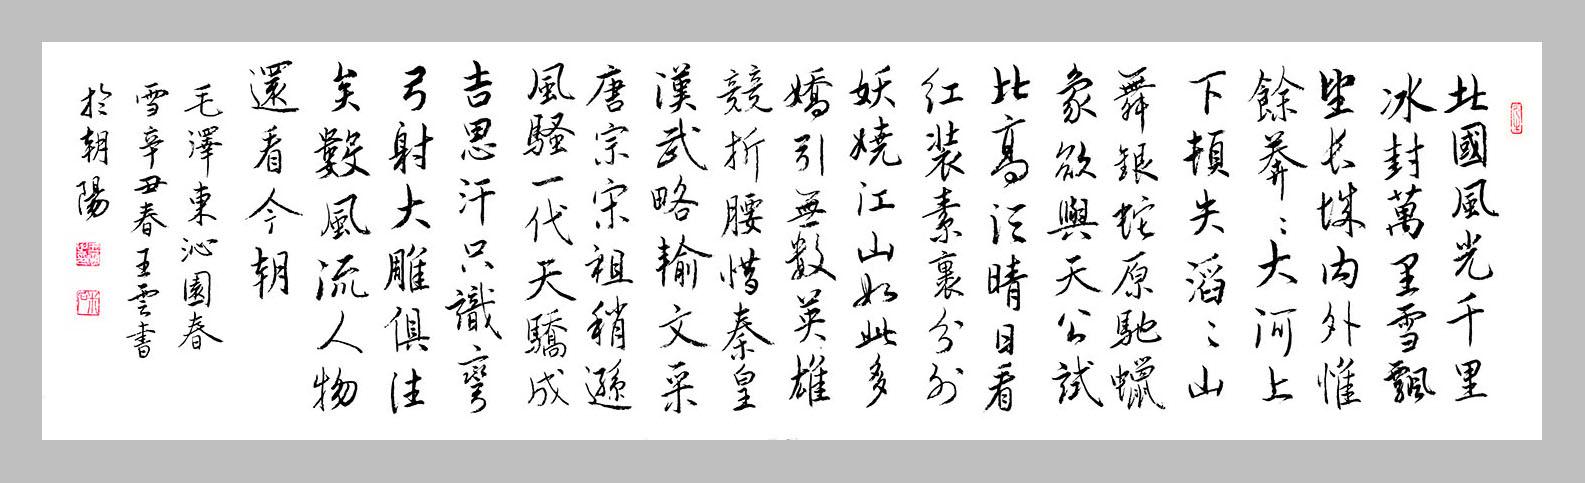 北國風光千里
冰封萬里雪飄
望长城内外惟
餘莽〻大河上
下頓失滔〻山
舞銀蛇原馳蠟
象欲與天公試
比高须晴日看
红装素裹分外
妖嬈江山如此多
嬌引無數英雄
競折腰惜秦皇
漢武略輸文采
唐宗宋祖稍遜
風騷一代天驕成
吉思汗只識彎
弓射大雕俱往
矣數風流人物
還看今朝
毛澤東沁園春
雪辛丑春王雲書
於朝陽